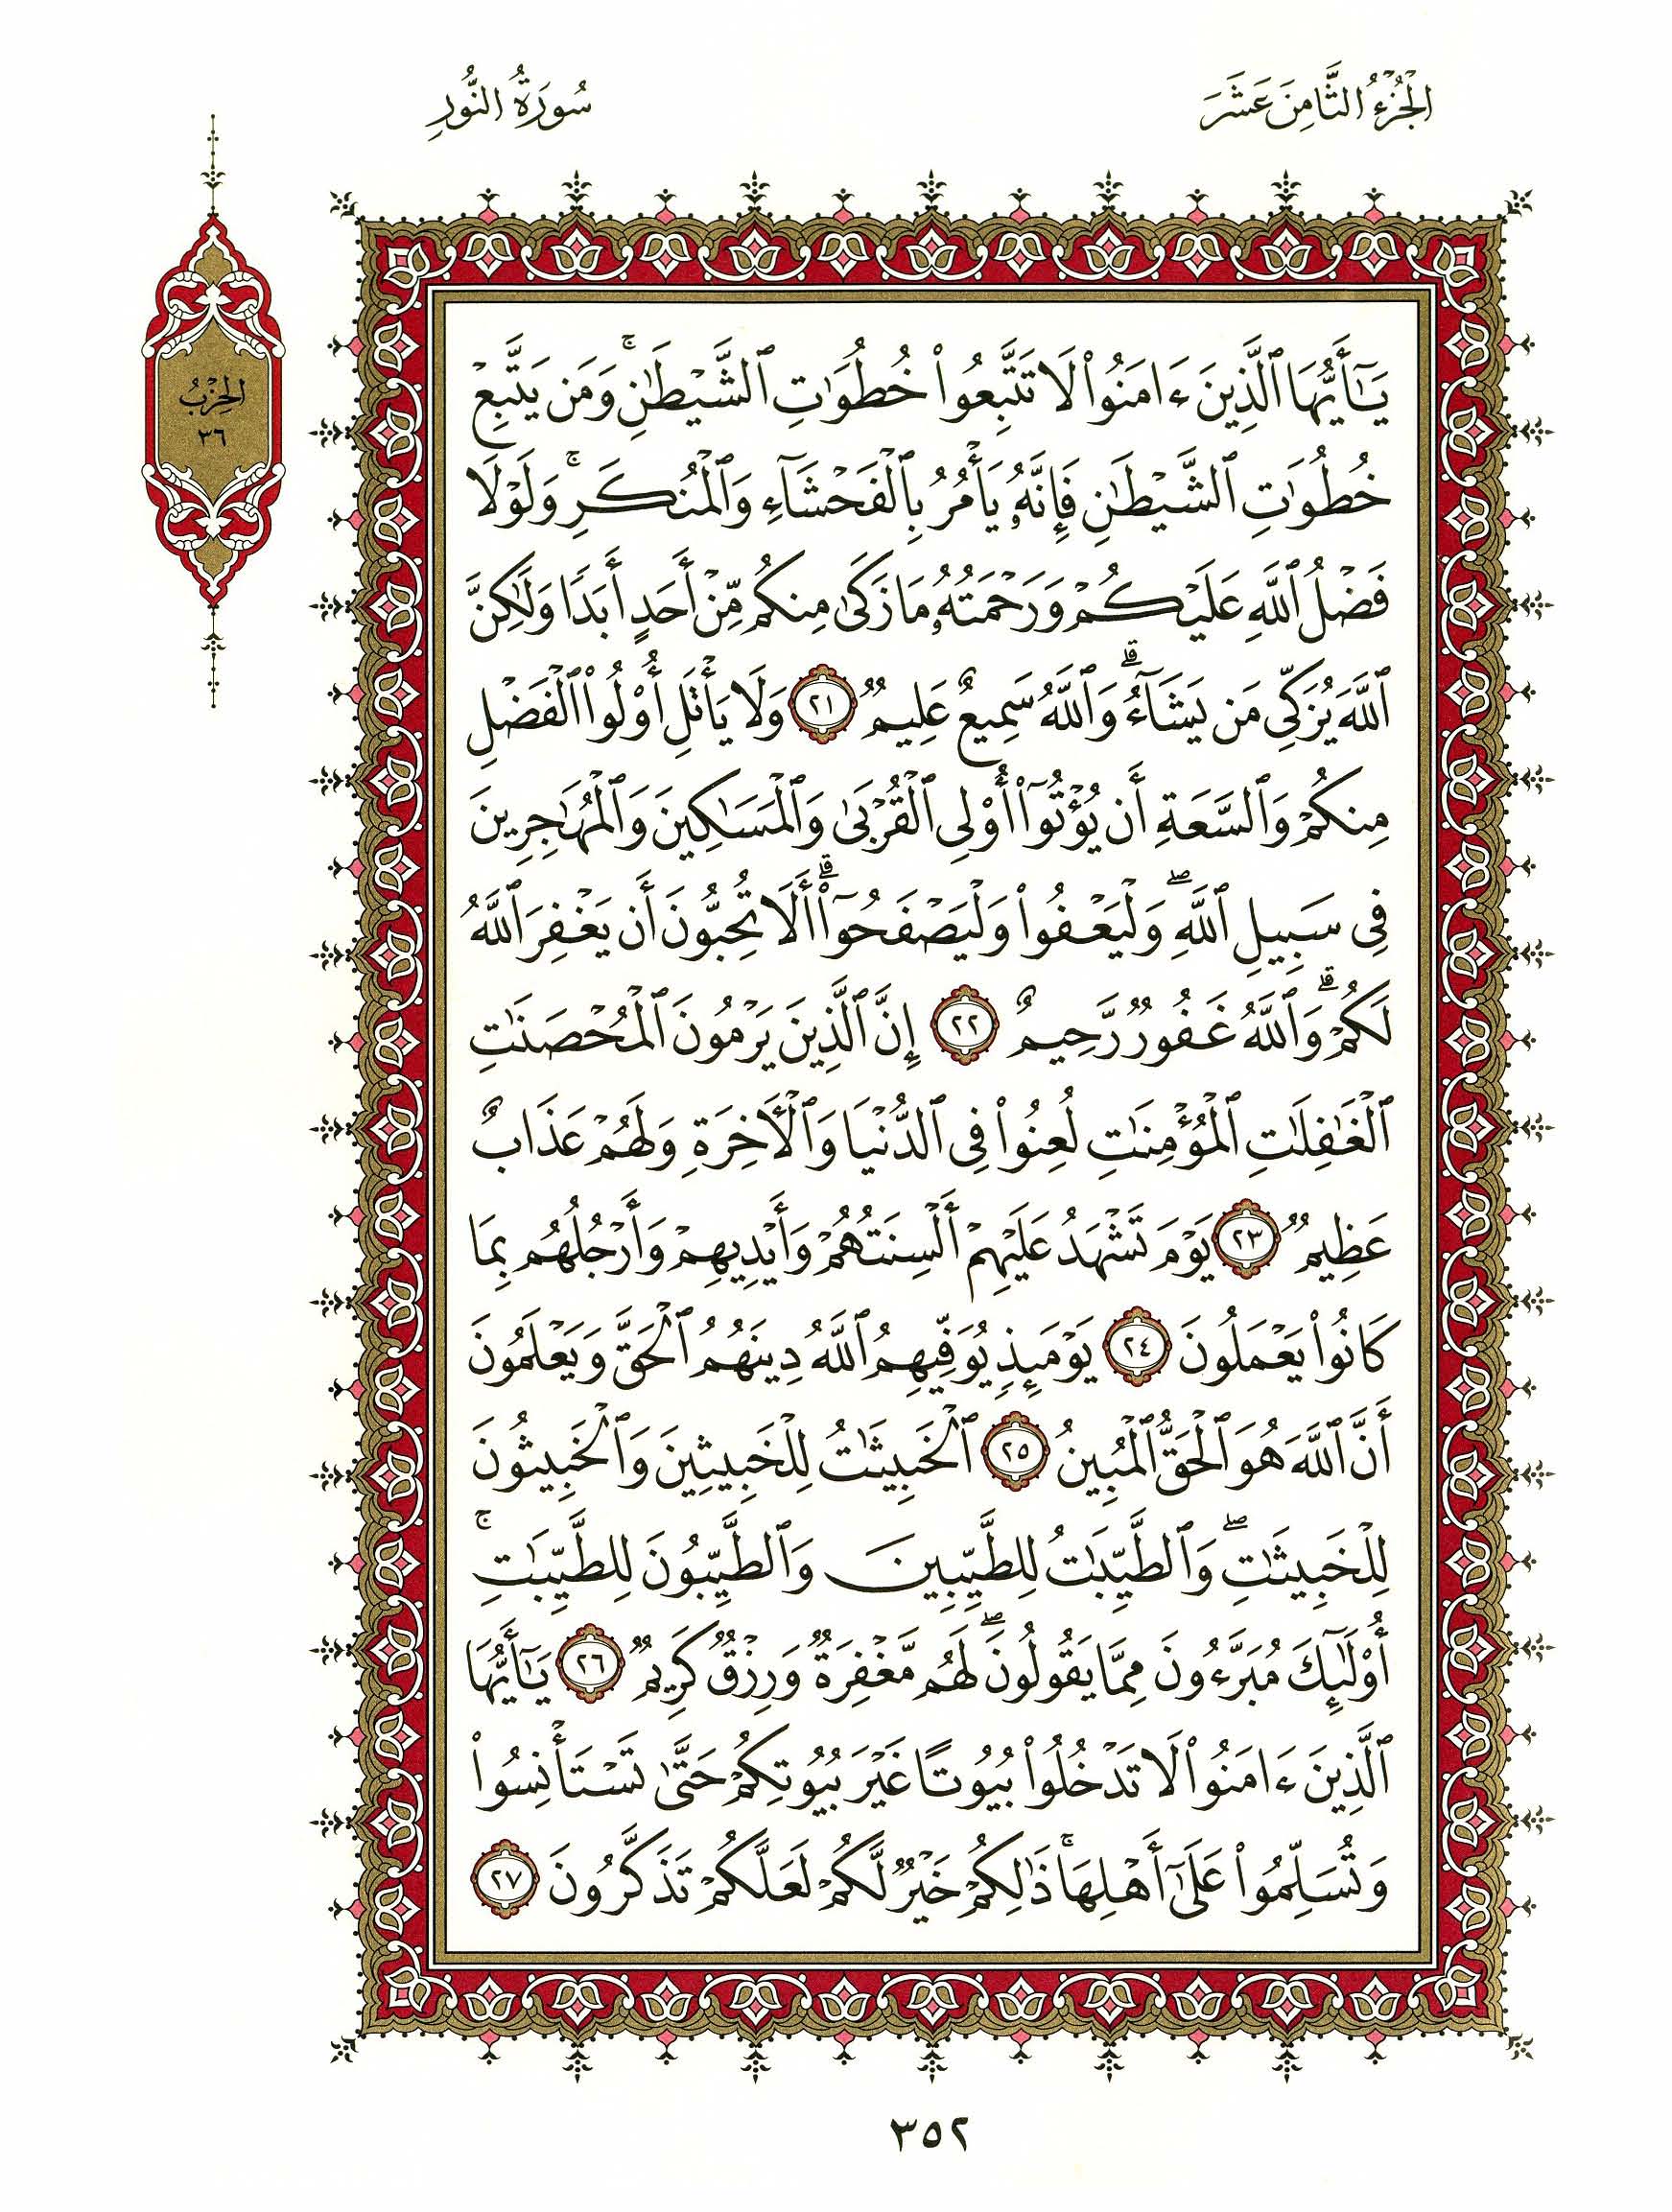 الجُزْءُ الثَّامِنَ عَشَرَ
سُورَةُ النُّورِ
الحِزْبُ
٣٦
يَـٰٓأَيُّهَا ٱلَّذِينَ ءَامَنُوا۟ لَا تَتَّبِعُوا۟ خُطُوَٰتِ ٱلشَّيْطَـٰنِ ۚ وَمَن يَتَّبِعْ
خُطُوَٰتِ ٱلشَّيْطَـٰنِ فَإِنَّهُۥ يَأْمُرُ بِٱلْفَحْشَآءِ وَٱلْمُنكَرِ ۚ وَلَوْلَا
فَضْلُ ٱللَّهِ عَلَيْكُمْ وَرَحْمَتُهُۥ مَا زَكَىٰ مِنكُم مِّنْ أَحَدٍ أَبَدًا وَلَـٰكِنَّ
ٱللَّهَ يُزَكِّى مَن يَشَآءُ ۗ وَٱللَّهُ سَمِيعٌ عَلِيمٌ ٢١ وَلَا يَأْتَلِ أُو۟لُوا۟ ٱلْفَضْلِ
مِنكُمْ وَٱلسَّعَةِ أَن يُؤْتُوٓا۟ أُو۟لِى ٱلْقُرْبَىٰ وَٱلْمَسَـٰكِينَ وَٱلْمُهَـٰجِرِينَ
فِى سَبِيلِ ٱللَّهِ ۖ وَلْيَعْفُوا۟ وَلْيَصْفَحُوٓا۟ ۗ أَلَا تُحِبُّونَ أَن يَغْفِرَ ٱللَّهُ
لَكُمْ ۗ وَٱللَّهُ غَفُورٌ رَّحِيمٌ ٢٢ إِنَّ ٱلَّذِينَ يَرْمُونَ ٱلْمُحْصَنَـٰتِ
ٱلْغَـٰفِلَـٰتِ ٱلْمُؤْمِنَـٰتِ لُعِنُوا۟ فِى ٱلدُّنْيَا وَٱلْـَٔاخِرَةِ وَلَهُمْ عَذَابٌ
عَظِيمٌ ٢٣ يَوْمَ تَشْهَدُ عَلَيْهِمْ أَلْسِنَتُهُمْ وَأَيْدِيهِمْ وَأَرْجُلُهُم بِمَا
كَانُوا۟ يَعْمَلُونَ ٢٤ يَوْمَئِذٍ يُوَفِّيهِمُ ٱللَّهُ دِينَهُمُ ٱلْحَقَّ وَيَعْلَمُونَ
أَنَّ ٱللَّهَ هُوَ ٱلْحَقُّ ٱلْمُبِينُ ٢٥ ٱلْخَبِيثَـٰتُ لِلْخَبِيثِينَ وَٱلْخَبِيثُونَ
لِلْخَبِيثَـٰتِ ۖ وَٱلطَّيِّبَـٰتُ لِلطَّيِّبِينَ وَٱلطَّيِّبُونَ لِلطَّيِّبَـٰتِ ۚ
أُو۟لَـٰٓئِكَ مُبَرَّءُونَ مِمَّا يَقُولُونَ ۖ لَهُم مَّغْفِرَةٌ وَرِزْقٌ كَرِيمٌ ٢٦ يَـٰٓأَيُّهَا
ٱلَّذِينَ ءَامَنُوا۟ لَا تَدْخُلُوا۟ بُيُوتًا غَيْرَ بُيُوتِكُمْ حَتَّىٰ تَسْتَأْنِسُوا۟
وَتُسَلِّمُوا۟ عَلَىٰٓ أَهْلِهَا ۚ ذَٰلِكُمْ خَيْرٌ لَّكُمْ لَعَلَّكُمْ تَذَكَّرُونَ ٢٧
٣٥٢